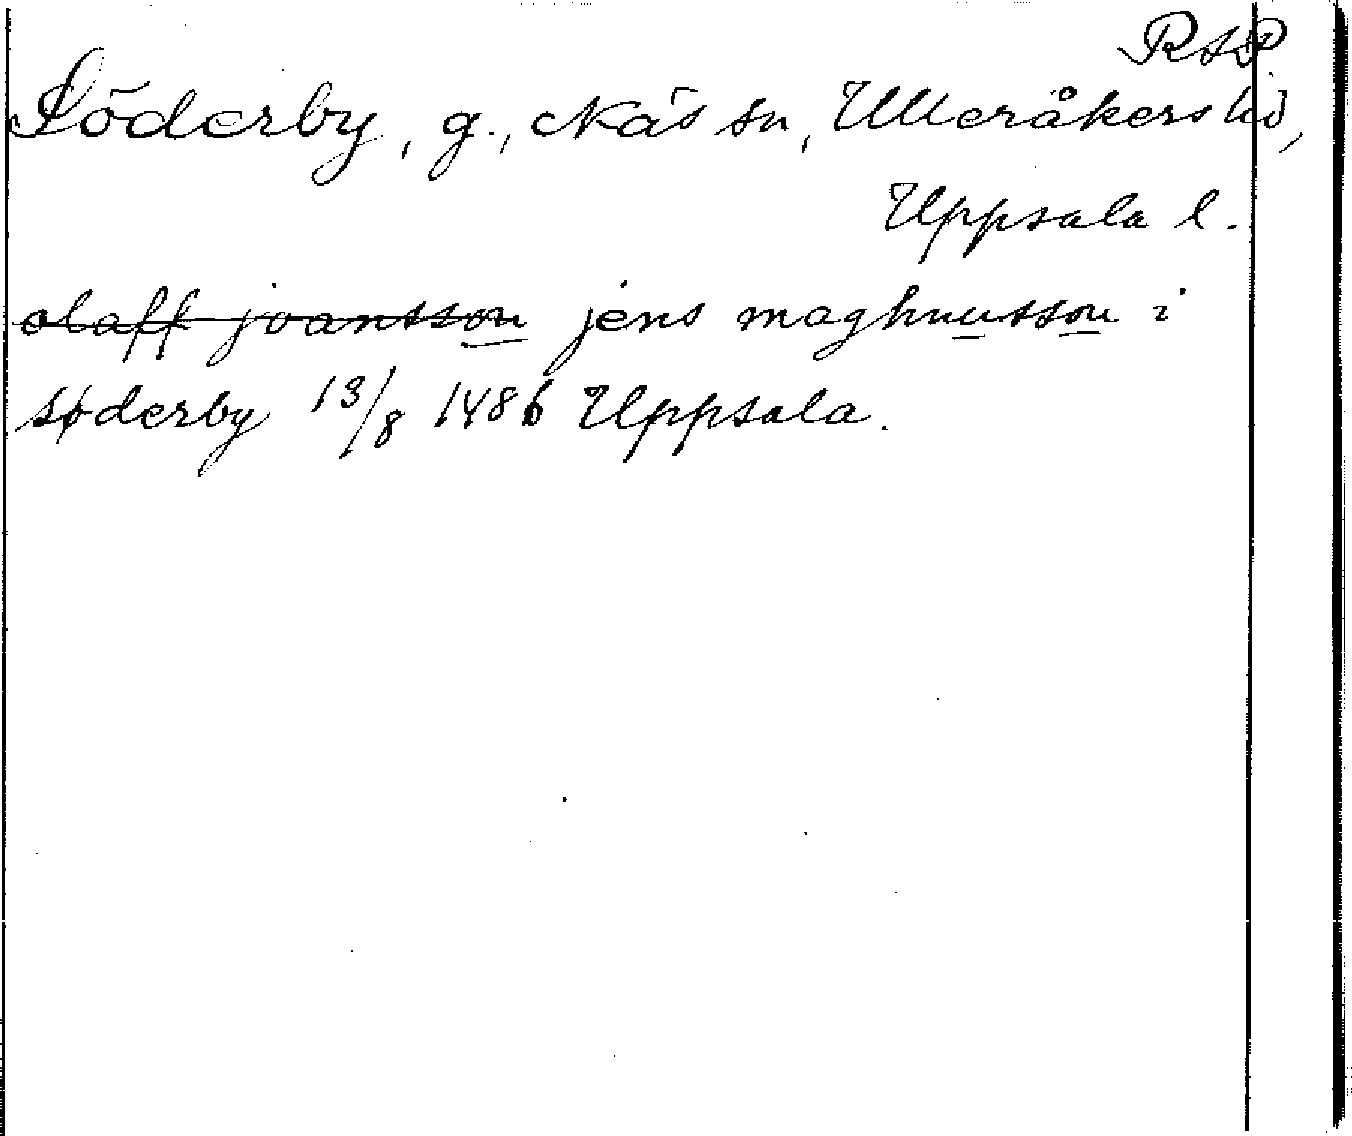 RAP
Söderby, g., Näs sn, Ulleråkers hd,
Uppsala l.
olaff joansson jens maghnusson i
søderby 13/8 1486 Uppsala.